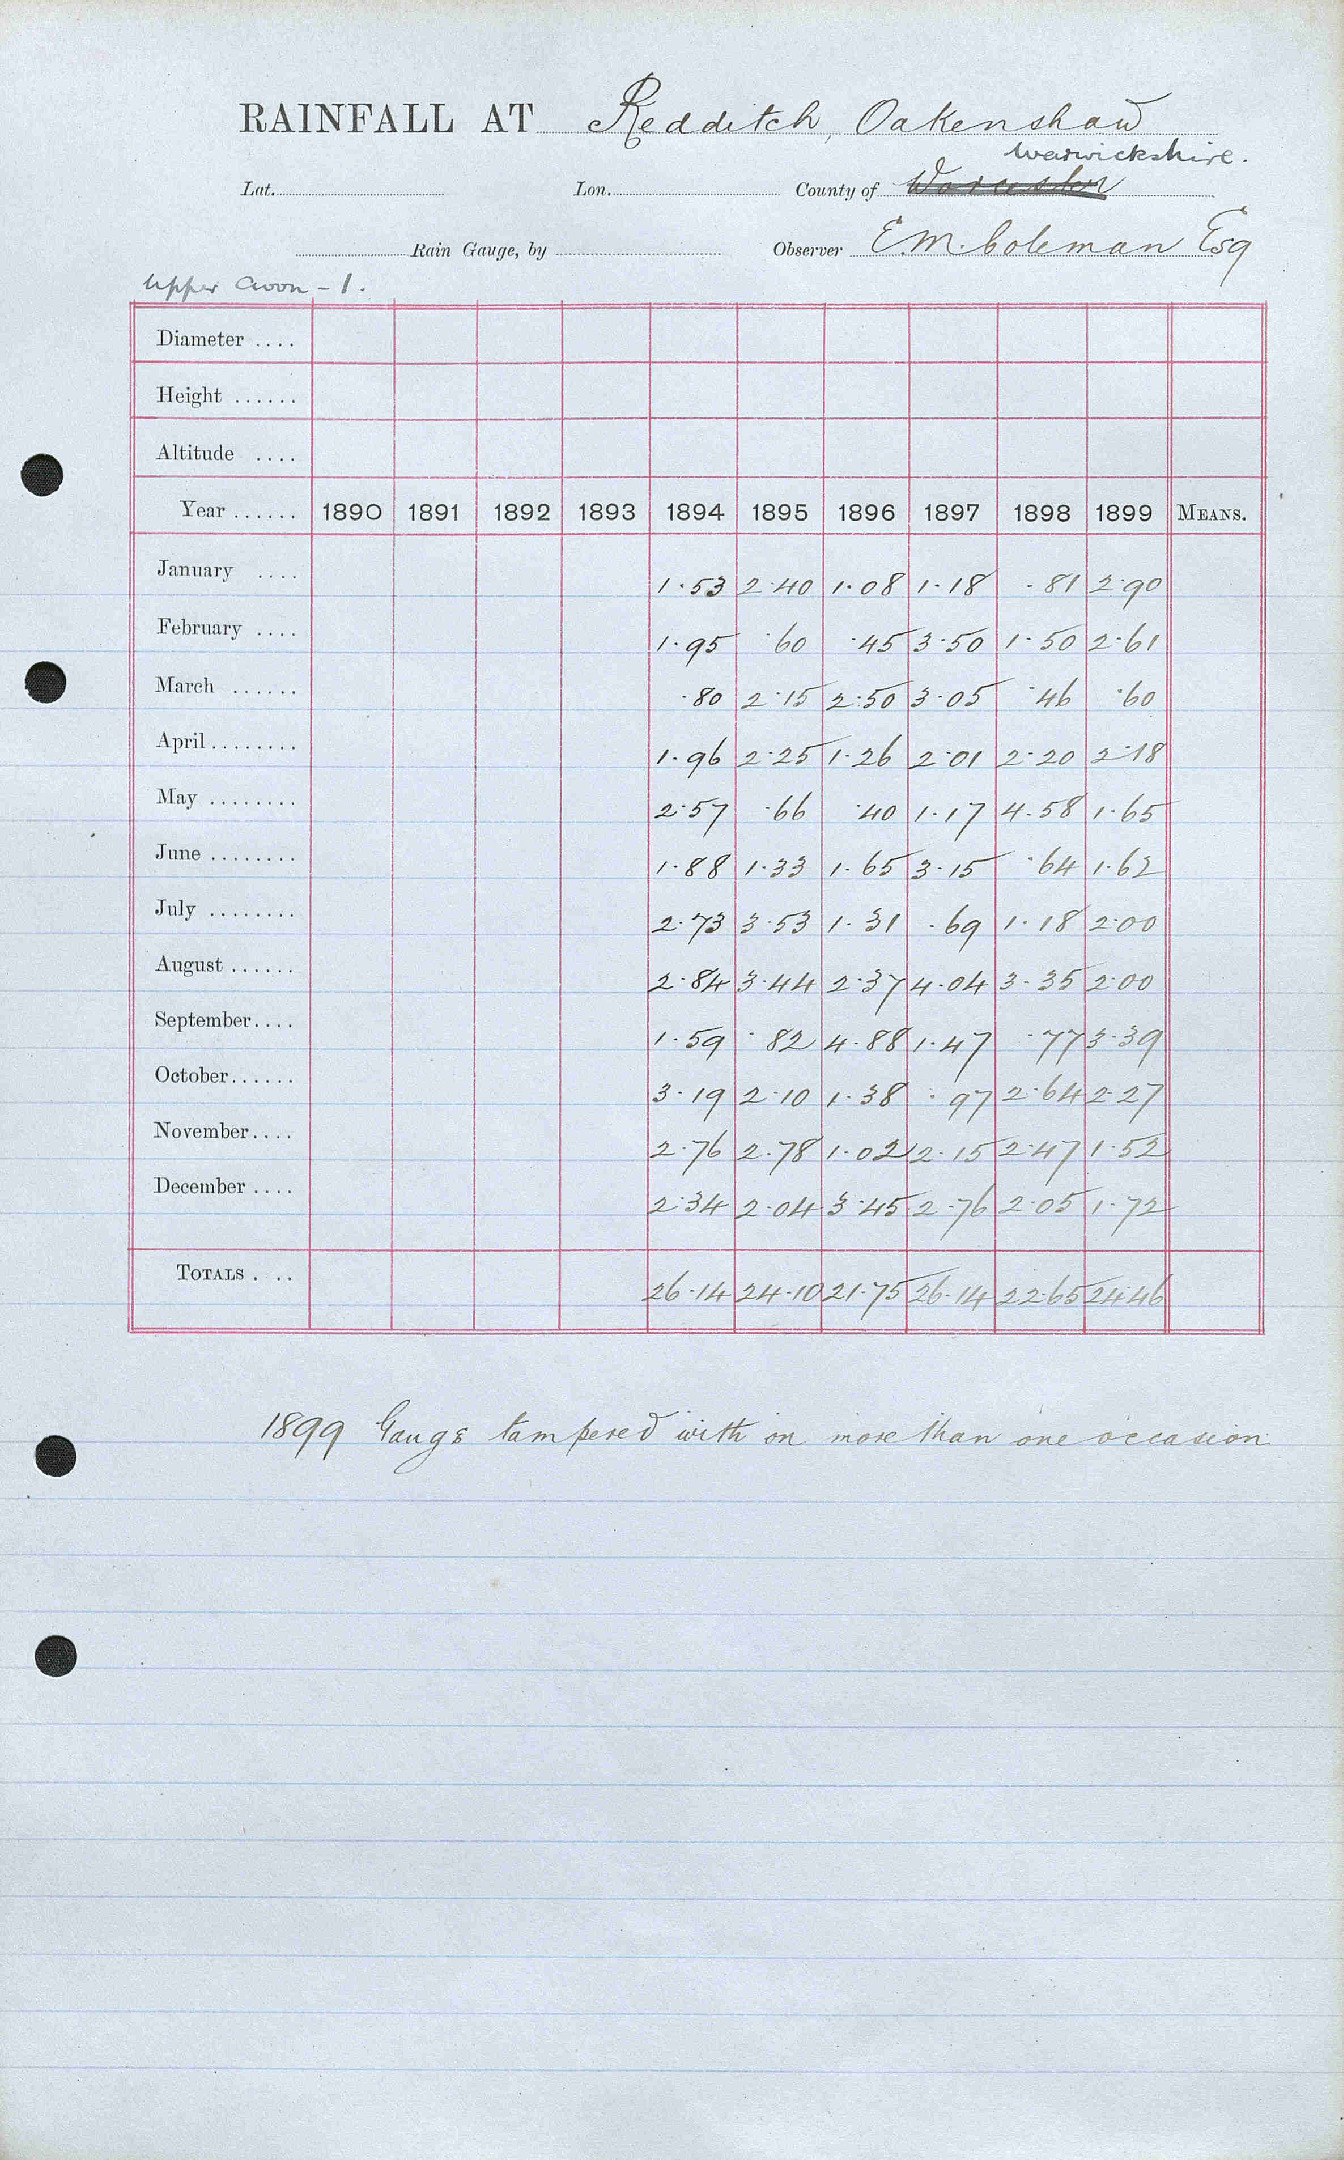 RAINFALL AT Redditch, Oakenshaw
Warwickshire.
Lat. Lon. County of Worcester
Rain Gauge, by Observer E.M. Coleman Esq
Upper Avon - 1.
Diameter ....
Height ......
Altitude ....
Year ...... 1890 1891 1892 1893 1894 1895 1896 1897 1898 1899 MEANS.
January .... 1.53 2.40 1.08 1.18 .81 2.90
February .... 1.95 .60 .45 3.50 1.50 2.61
March ...... .80 2.15 2.50 3.05 .46 .60
April ........ 1.96 2.25 1.26 2.01 2.20 2.18
May ........ 2.57 .66 .40 1.17 4.58 1.65
June ........ 1.88 1.33 1.65 3.15 .64 1.62
July ........ 2.73 3.53 1.31 .69 1.18 2.00
August ...... 2.84 3.44 2.37 4.04 3.35 2.00
September.... 1.59 .82 4.88 1.47 .77 3.39
October...... 3.19 2.10 1.38 .97 2.64 2.27
November.... 2.76 2.78 1.02 2.15 2.47 1.52
December .... 2.34 2.04 3.45 2.76 2.05 1.72
TOTALS . .. 26.14 24.10 21.75 26.14 22.65 24.46
1899 Gauge tampered with on more than one occasion